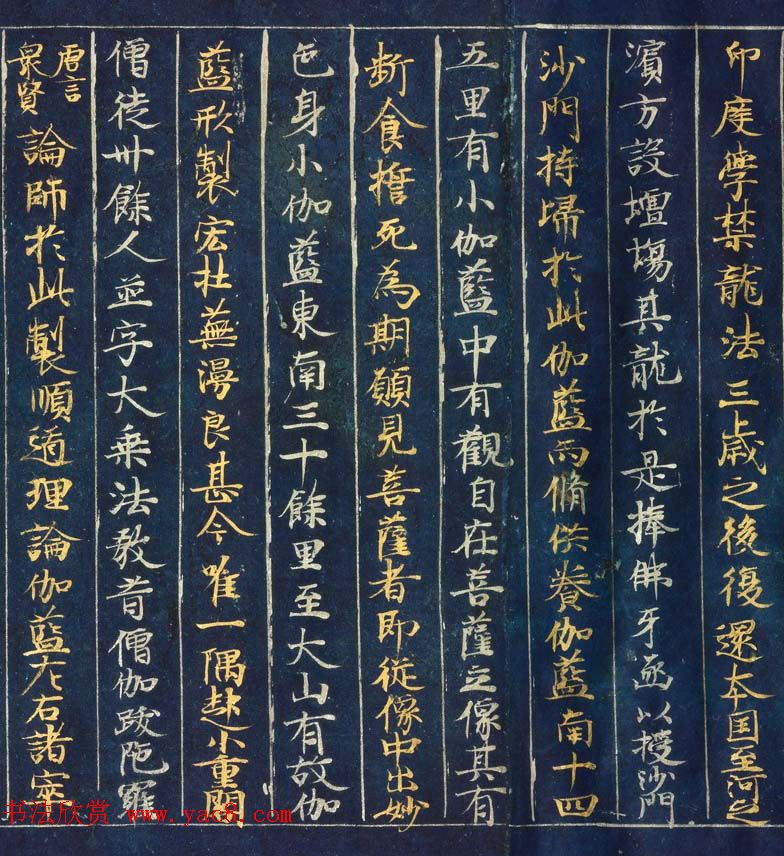 印度學禁龍法三歲之後復還本国至河之
濱方設壇塲其龍於是捧佛牙函以授沙門
沙門持歸於此伽藍而脩供養伽藍南十四
五里有小伽藍中有觀自在菩薩立像其有
斷食擔死為期願見菩薩者即從像中出妙
色身小伽藍東南三十餘里至大山有故伽
藍形製宏壯蕪漫良甚今唯一隅起小重閣
僧徒卅餘人並字大乗法教昔僧伽跋陁羅
唐言
衆賢
論師於此製順道理論伽藍左右諸窣
书法欣赏 www.yac8.com